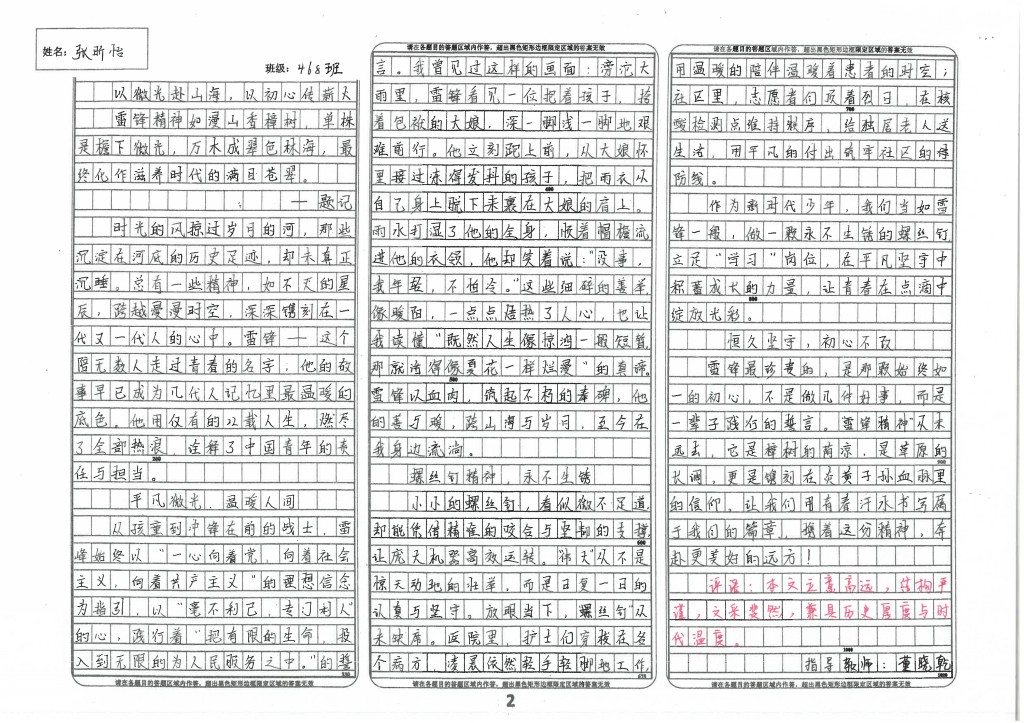 姓名：张昕怡
班级：468班
以微光赴山海，以初心传薪火
雷锋精神如漫山香樟树，单株
是檐下微光，万木成翠包林海，最
终化作滋养时代的满目苍翠。
——题记
时光的风掠过岁月的河，那些
沉淀在河底的历史足迹，却未真正
沉睡。总有一些精神，如不灭的星
辰，跨越漫漫时空，深深镌刻在一
代又一代人的心中。雷锋——这个
陪无数人走过青春的名字，他的故
事早已成为几代人记忆里最温暖的
底色。他用仅有的22载人生，燃尽
了全部热浪，诠释了中国青年的责
200
任与担当。
平凡微光，温暖人间
从孩童到冲锋在前的战士，雷
锋始终以“一心向着党，向着社会
主义，向着共产主义”的理想信念
为指引，以“毫不利己，专门利人”
的心，践行着“把有限的生命，投
入到无限的为人民服务之中。”的誓
请在各题目的答题区域内作答，超出黑色矩形边框限定区域的答案无效
请在各题目的答题区域内作答，超出黑色矩形边框限定区域的答案无效
言。我曾见过这样的画面：滂沱大
雨里，雷锋看见一位抱着孩子，拎
着包袱的大娘，深一脚浅一脚地艰
难前行。他立刻跑上前，从大娘怀
里接过冻得发抖的孩子，把雨衣从
400
自己身上脱下来裹在大娘的肩上。
雨水打湿了他的全身，顺着帽檐流
进他的衣领，他却笑着说：“没事，
我年轻，不怕冷。”这些细碎的善举，
像暖阳，一点点焐热了人心，也让
我读懂“既然人生像惊鸿一般短暂，
那就活得像夏花一样烂漫”的真谛。
500
雷锋以血肉，筑起不朽的丰碑，他
的善与暖，跨山海与岁月，至今在
我身边流淌。
螺丝钉精神，永不生锈
小小的螺丝钉，看似微不足道，
却能凭借精准的咬合与坚韧的支撑，
600
让庞大机器高效运转。“伟大”从不是
惊天动地的壮举，而是日复一日的
认真与坚守。放眼当下，螺丝钉从
未缺席。医院里，护士们穿梭在各
个病房，凌晨依然轻手轻脚地工作，
请在各题目的答题区域内作答，超出黑色矩形边框限定区域的答案无效
请在各题目的答题区域内作答，超出黑色矩形边框限定区域的答案无效
用温暖的陪伴温暖着患者的时空；
社区里，志愿者们顶着烈日，在核
700
酸检测点维持秩序，给独居老人送
生活，用平凡的付出筑牢社区的
防线。
作为新时代少年，我们当如雷
锋一般，做一颗永不生锈的螺丝钉
立足“学习”岗位，在平凡坚守中
积蓄成长的力量，让青春在点滴中
800
绽放光彩。
恒久坚守，初心不改
雷锋最珍贵的，是那颗始终如
一的初心，不是做几件好事，而是
一辈子践行的誓言。雷锋精神“从未
远去，它是樟树的荫凉，是草原的
900
长调，更是镌刻在炎黄子孙血脉里
的信仰。让我们用青春汗水书写属
于我们的篇章，携着这份精神，奔
赴更美好的远方！
评语：本文立意高远，结构严
谨，文采斐然，兼具历史厚度与时
代温度。
1000
指导教师：董晓乾
请在各题目的答题区域内作答，超出黑色矩形边框限定区域的答案无效
2